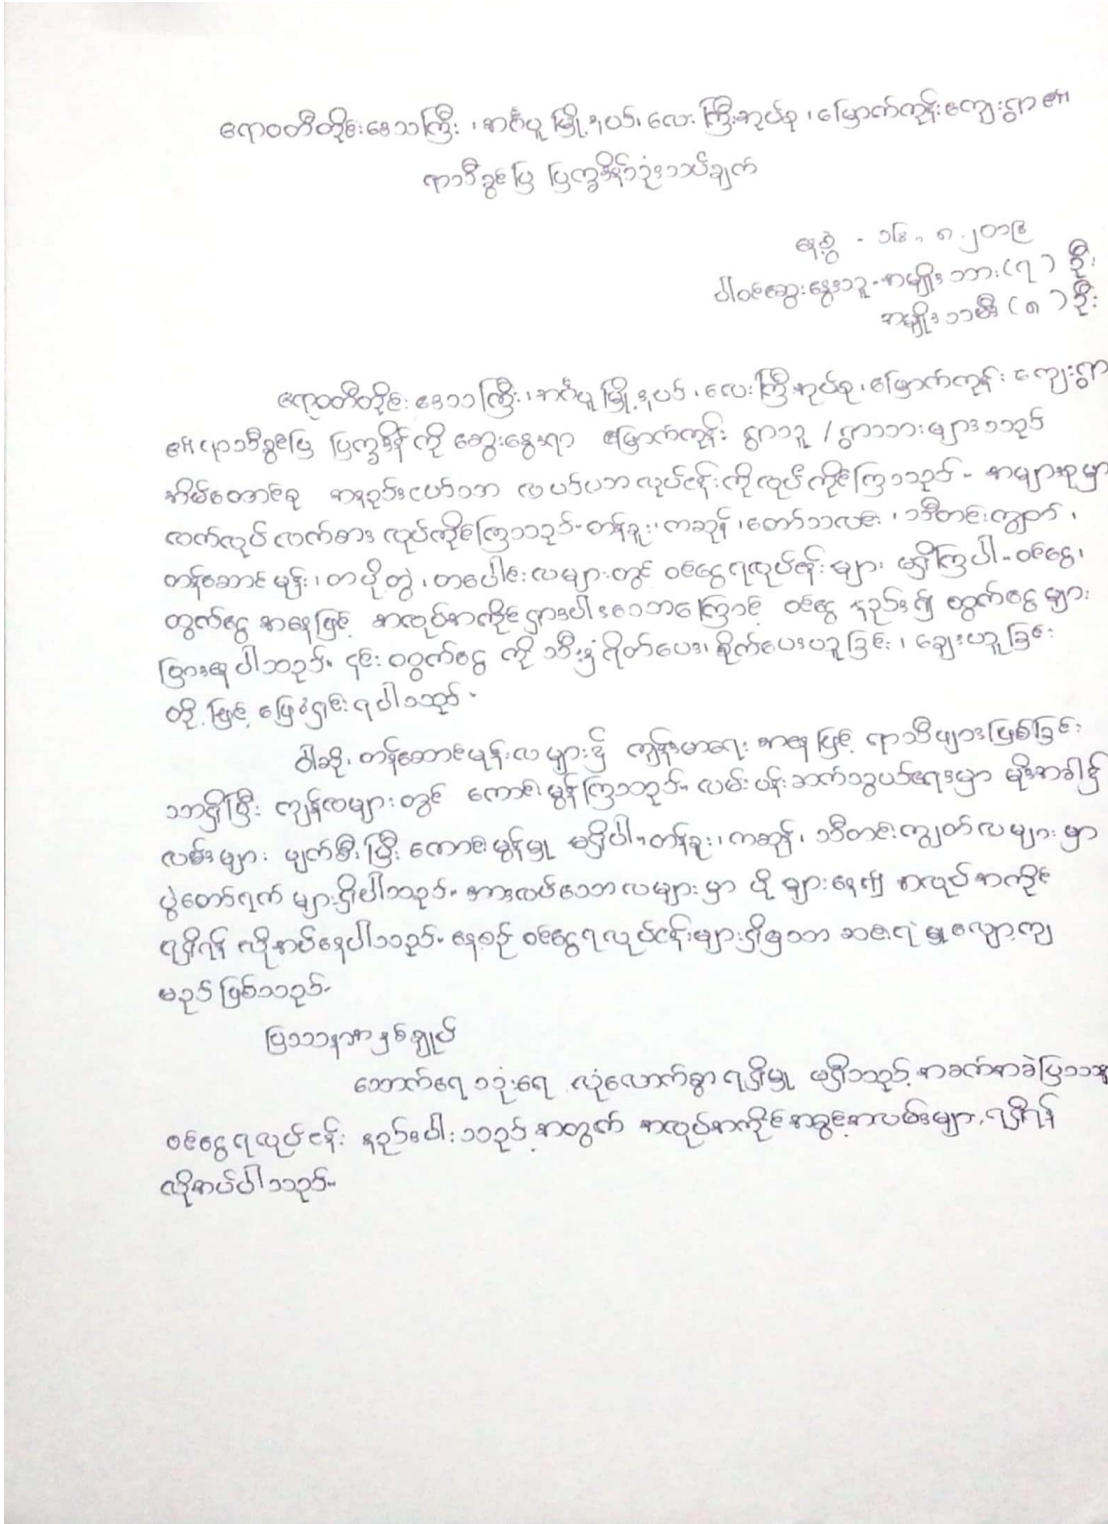 ဧရာဝတီတိုင်းဒေသကြီး ၊ အင်္ဂပူမြို့နယ်၊ လေးကြီးအုပ်စု ၊ မြောက်ကုန်းကျေးရွာ ၏
ရာသီခွင်ပြ ပြက္ခဒိန်သုံးသပ်ချက်
နေ့စွဲ - ၁၆.၈.၂၀၁၉
ပါဝင်ဆွေးနွေးသူ - အမျိုးသား (၇) ဦး
အမျိုးသမီး (၈) ဦး
ဧရာဝတီတိုင်းဒေသကြီး ၊ အင်္ဂပူမြို့နယ် ၊ လေးကြီးအုပ်စု ၊ မြောက်ကုန်း ကျေးရွာ
၏ ရာသီခွင်ပြ ပြက္ခဒိန် ကို ဆွေးနွေးရာ မြောက်ကုန်း ရွာသူ / ရွာသားများသည်
အိမ်ထောင်စု အနည်းငယ်သာ လယ်ယာလုပ်ငန်းကို လုပ်ကိုင်ကြသည်။ အများစုမှာ
လက်လုပ် လက်စား လုပ်ကိုင်ကြသည်။ တန်ခူး ၊ ကဆုန် ၊ တော်သလင်း ၊ သီတင်းကျွတ် ၊
တန်ဆောင်မုန်း ၊ တပို့တွဲ ၊ တပေါင်းလများတွင် ဝင်ငွေရလုပ်ငန်းများ မရှိကြပါ။ ဝင်ငွေ ၊
ထွက်ငွေ အနေဖြင့် အလုပ်အကိုင် ရှားပါးသောကြောင့် ဝင်ငွေ နည်း၍ ထွက်ငွေ များ
ပြားနေပါသည်။ ၎င်း ထွက်ငွေ ကို သီးနှံရိတ်ပေး၊ စိုက်ပေးယူခြင်း ၊ ချေးယူခြင်း
တို့ ဖြင့် ဖြေရှင်းရပါသည်။
ဝါဆို ၊ တန်ဆောင်မုန်းလ များ၌ ကျန်းမာရေး အနေဖြင့် ရာသီဖျားဖြစ်ခြင်း
သာရှိပြီး ကျန်လများတွင် ကောင်းမွန်ကြသည်။ လမ်းပန်းဆက်သွယ်ရေးမှာ မိုးအခါ၌
လမ်းများ ပျက်စီးပြီး ကောင်းမွန်မှု မရှိပါ။ တန်ခူး ၊ ကဆုန် ၊ သီတင်းကျွတ်လများမှာ
ပွဲတော်ရက် များရှိပါသည်။ အားလပ်သောလများမှာ ပို များနေ၍ အလုပ်အကိုင်
ရရှိရန် လိုအပ်နေပါသည်။ နေ့စဉ် ဝင်ငွေရလုပ်ငန်းများရှိမှသာ ဆင်းရဲမှု လျော့ကျ
မည် ဖြစ်သည်။
ပြဿနာအနှစ်ချုပ်
သောက်ရေ သုံးရေ လုံလောက်စွာ ရရှိမှု မရှိသည့် အခက်အခဲပြဿ
ဝင်ငွေရလုပ်ငန်း နည်းပါးသည့်အတွက် အလုပ်အကိုင်အခွင့်အလမ်းများ ရရှိရန်
လိုအပ်ပါသည်။